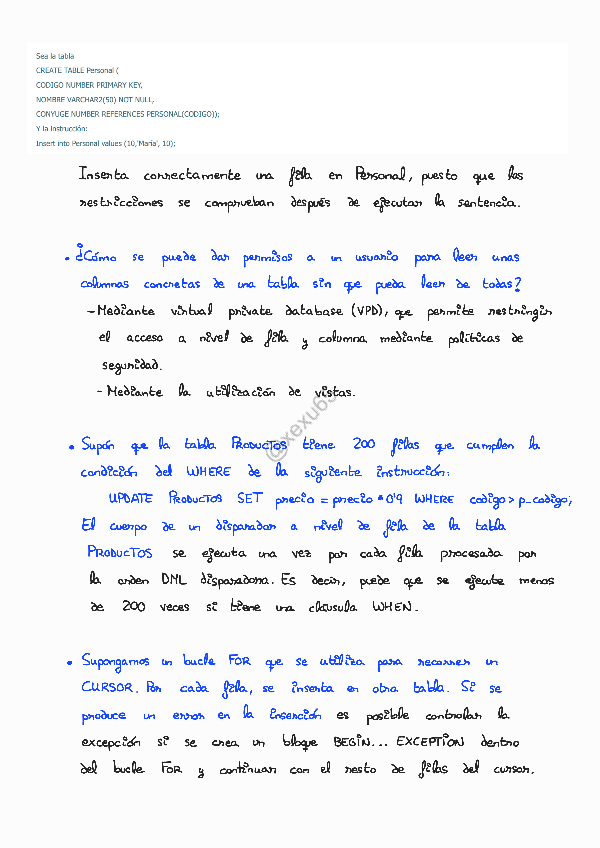 Sea la tabla
CREATE TABLE Personal (
CODIGO NUMBER PRIMARY KEY,
NOMBRE VARCHAR2(50) NOT NULL,
CONYUGE NUMBER REFERENCES PERSONAL(CODIGO));
Y la instrucción:
Insert into Personal values (10,'María', 10);
Inserta correctamente una fila en Personal, puesto que las
restricciones se comprueban después de ejecutar la sentencia.
• ¿Cómo se puede dar permisos a un usuario para leer unas
columnas concretas de una tabla sin que pueda leer de todas?
- Mediante virtual private database (VPD), que permite restringir
el acceso a nivel de fila y columna mediante políticas de
seguridad.
- Mediante la utilización de vistas.
@xexu65
• Supón que la tabla PRODUCTOS tiene 200 filas que cumplen la
condición del WHERE de la siguiente instrucción:
UPDATE PRODUCTOS SET precio = precio * 0'9 WHERE codigo > p_codigo;
El cuerpo de un disparador a nivel de fila de la tabla
PRODUCTOS se ejecuta una vez por cada fila procesada por
la orden DML disparadora. Es decir, puede que se ejecute menos
de 200 veces si tiene una cláusula WHEN.
• Supongamos un bucle FOR que se utiliza para recorrer un
CURSOR. Por cada fila, se inserta en otra tabla. Si se
produce un error en la inserción es posible controlar la
excepción si se crea un bloque BEGIN... EXCEPTION dentro
del bucle FOR y continuar con el resto de filas del cursor.